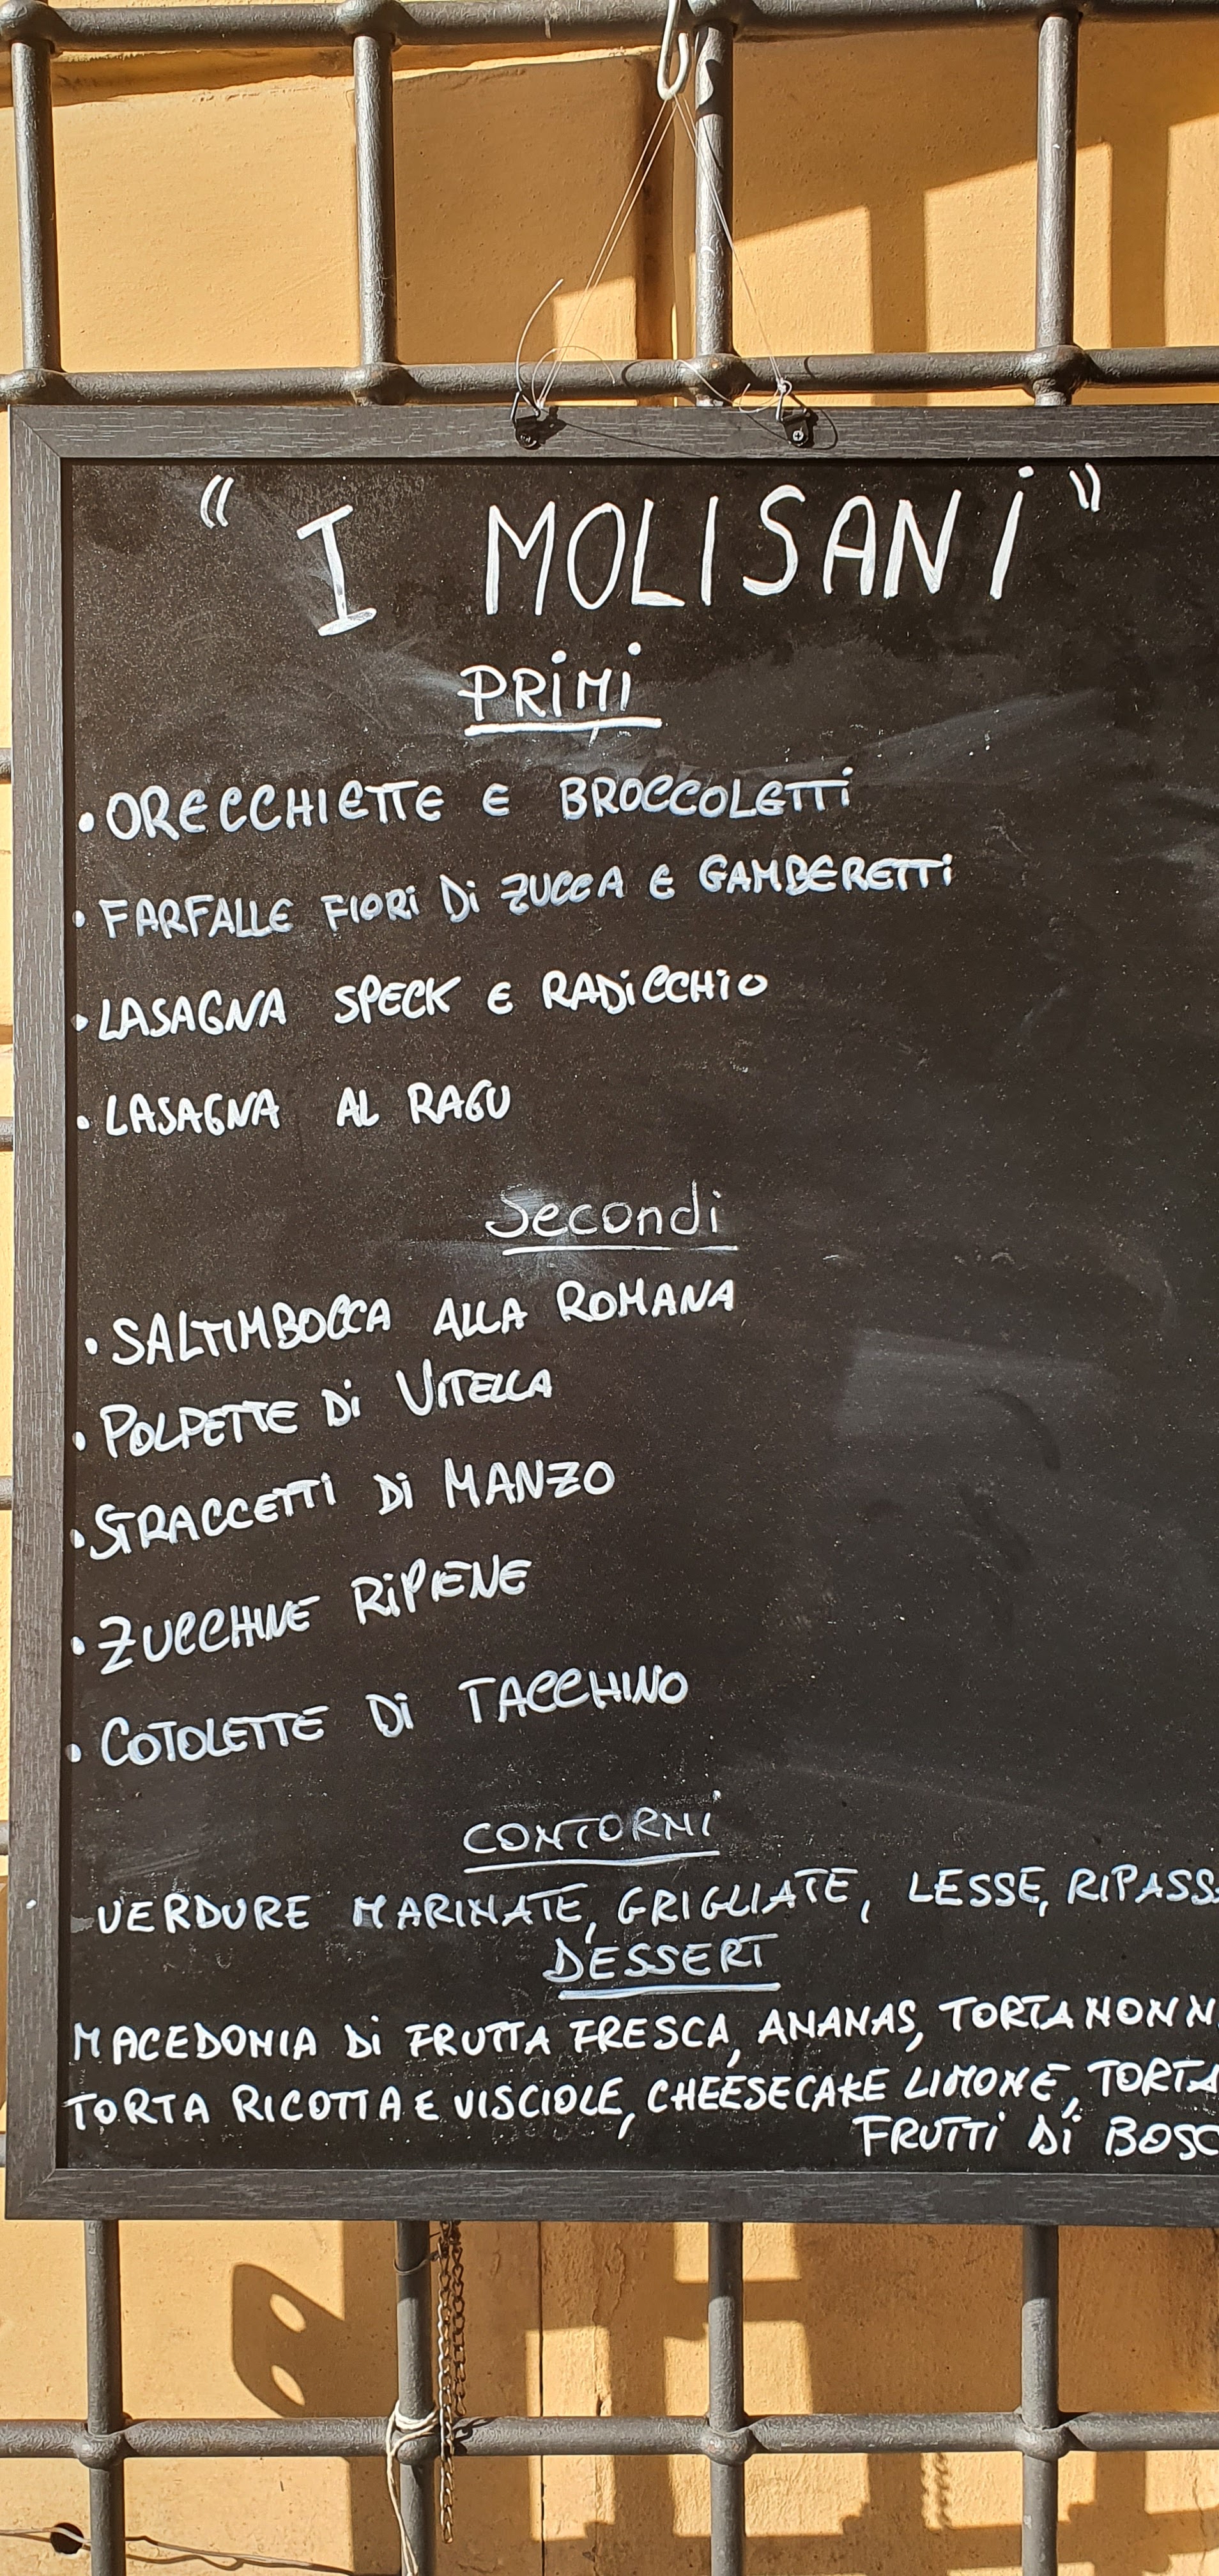 " I MOLISANI "
PRIMI
• ORECCHIETTE E BROCCOLETTI
• FARFALLE FIORI DI ZUCCA E GAMBERETTI
• LASAGNA SPECK E RADICCHIO
• LASAGNA AL RAGU
Secondi
• SALTIMBOCCA ALLA ROMANA
• POLPETTE DI VITELLA
• STRACCETTI DI MANZO
• ZUCCHINE RIPIENE
• COTOLETTE DI TACCHINO
CONTORNI
VERDURE MARINATE, GRIGLIATE, LESSE, RIPASS
DESSERT
MACEDONIA DI FRUTTA FRESCA, ANANAS, TORTA NONN
TORTA RICOTTA E VISCIOLE, CHEESECAKE LIMONE, TORTA
FRUTTI DI BOSC